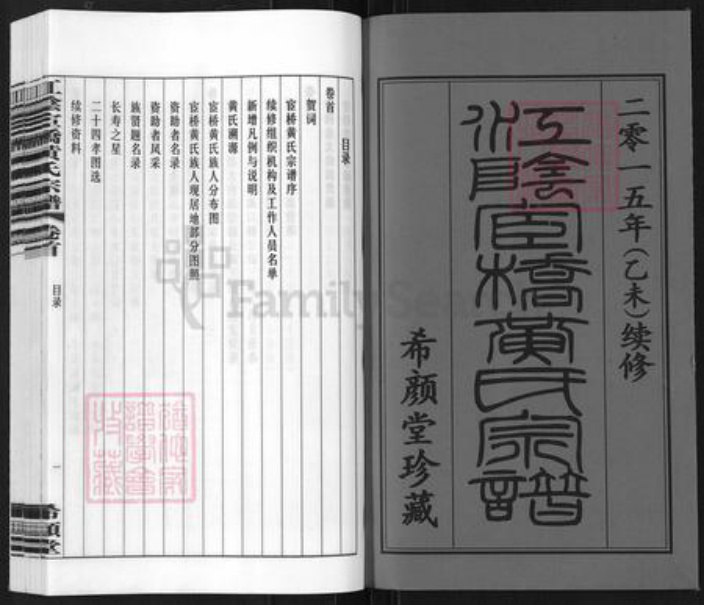 二零一五年(乙未)续修
江阴宦桥黄氏宗谱
希颜堂珍藏
目录
卷首
贺词
宦桥黄氏宗谱序
续修组织机构及工作人员名单
新增凡例与说明
黄氏溯源
宦桥黄氏族人分布图
宦桥黄氏族人现居地部分图照
资助者名录
资助者风采
族贤题名录
长寿之星
二十四孝图选
续修资料
卷首
目录
一
希颜堂
FamilySearch